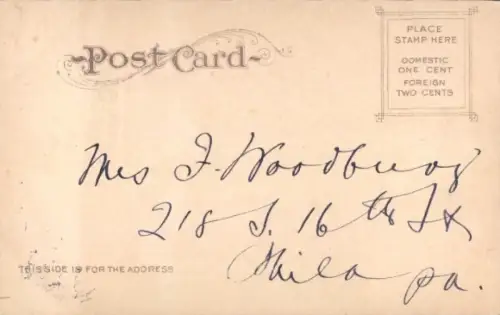 Post Card
PLACE
STAMP HERE
DOMESTIC
ONE CENT
FOREIGN
TWO CENTS
Mrs J. Woodbury
218 S. 16th St
Phila pa.
THIS SIDE IS FOR THE ADDRESS